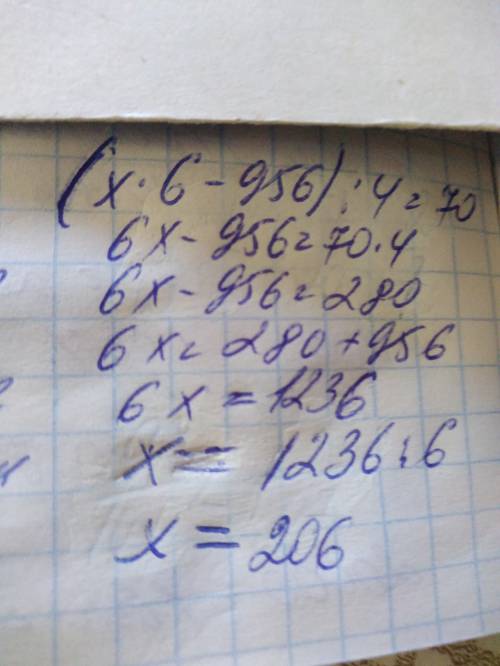 (x·6-956):4=70
6x-956=70·4
6x-956=280
6x=280+956
6x=1236
x=1236:6
x=206